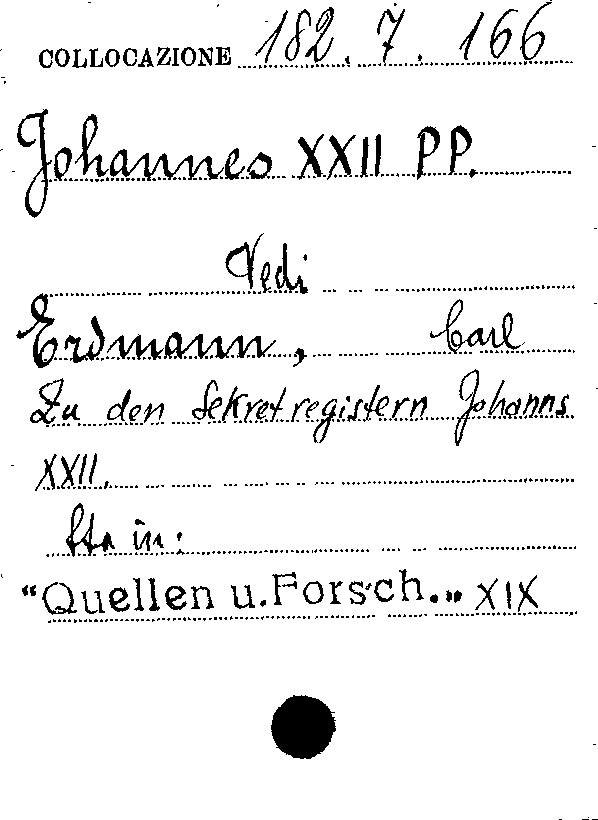 COLLOCAZIONE 182.7.166
Johannes XXII PP.
Vedi
Erdmann, Carl
Zu den Sekretregistern Johanns
XXII.
Sta in:
"Quellen u. Forsch." XIX